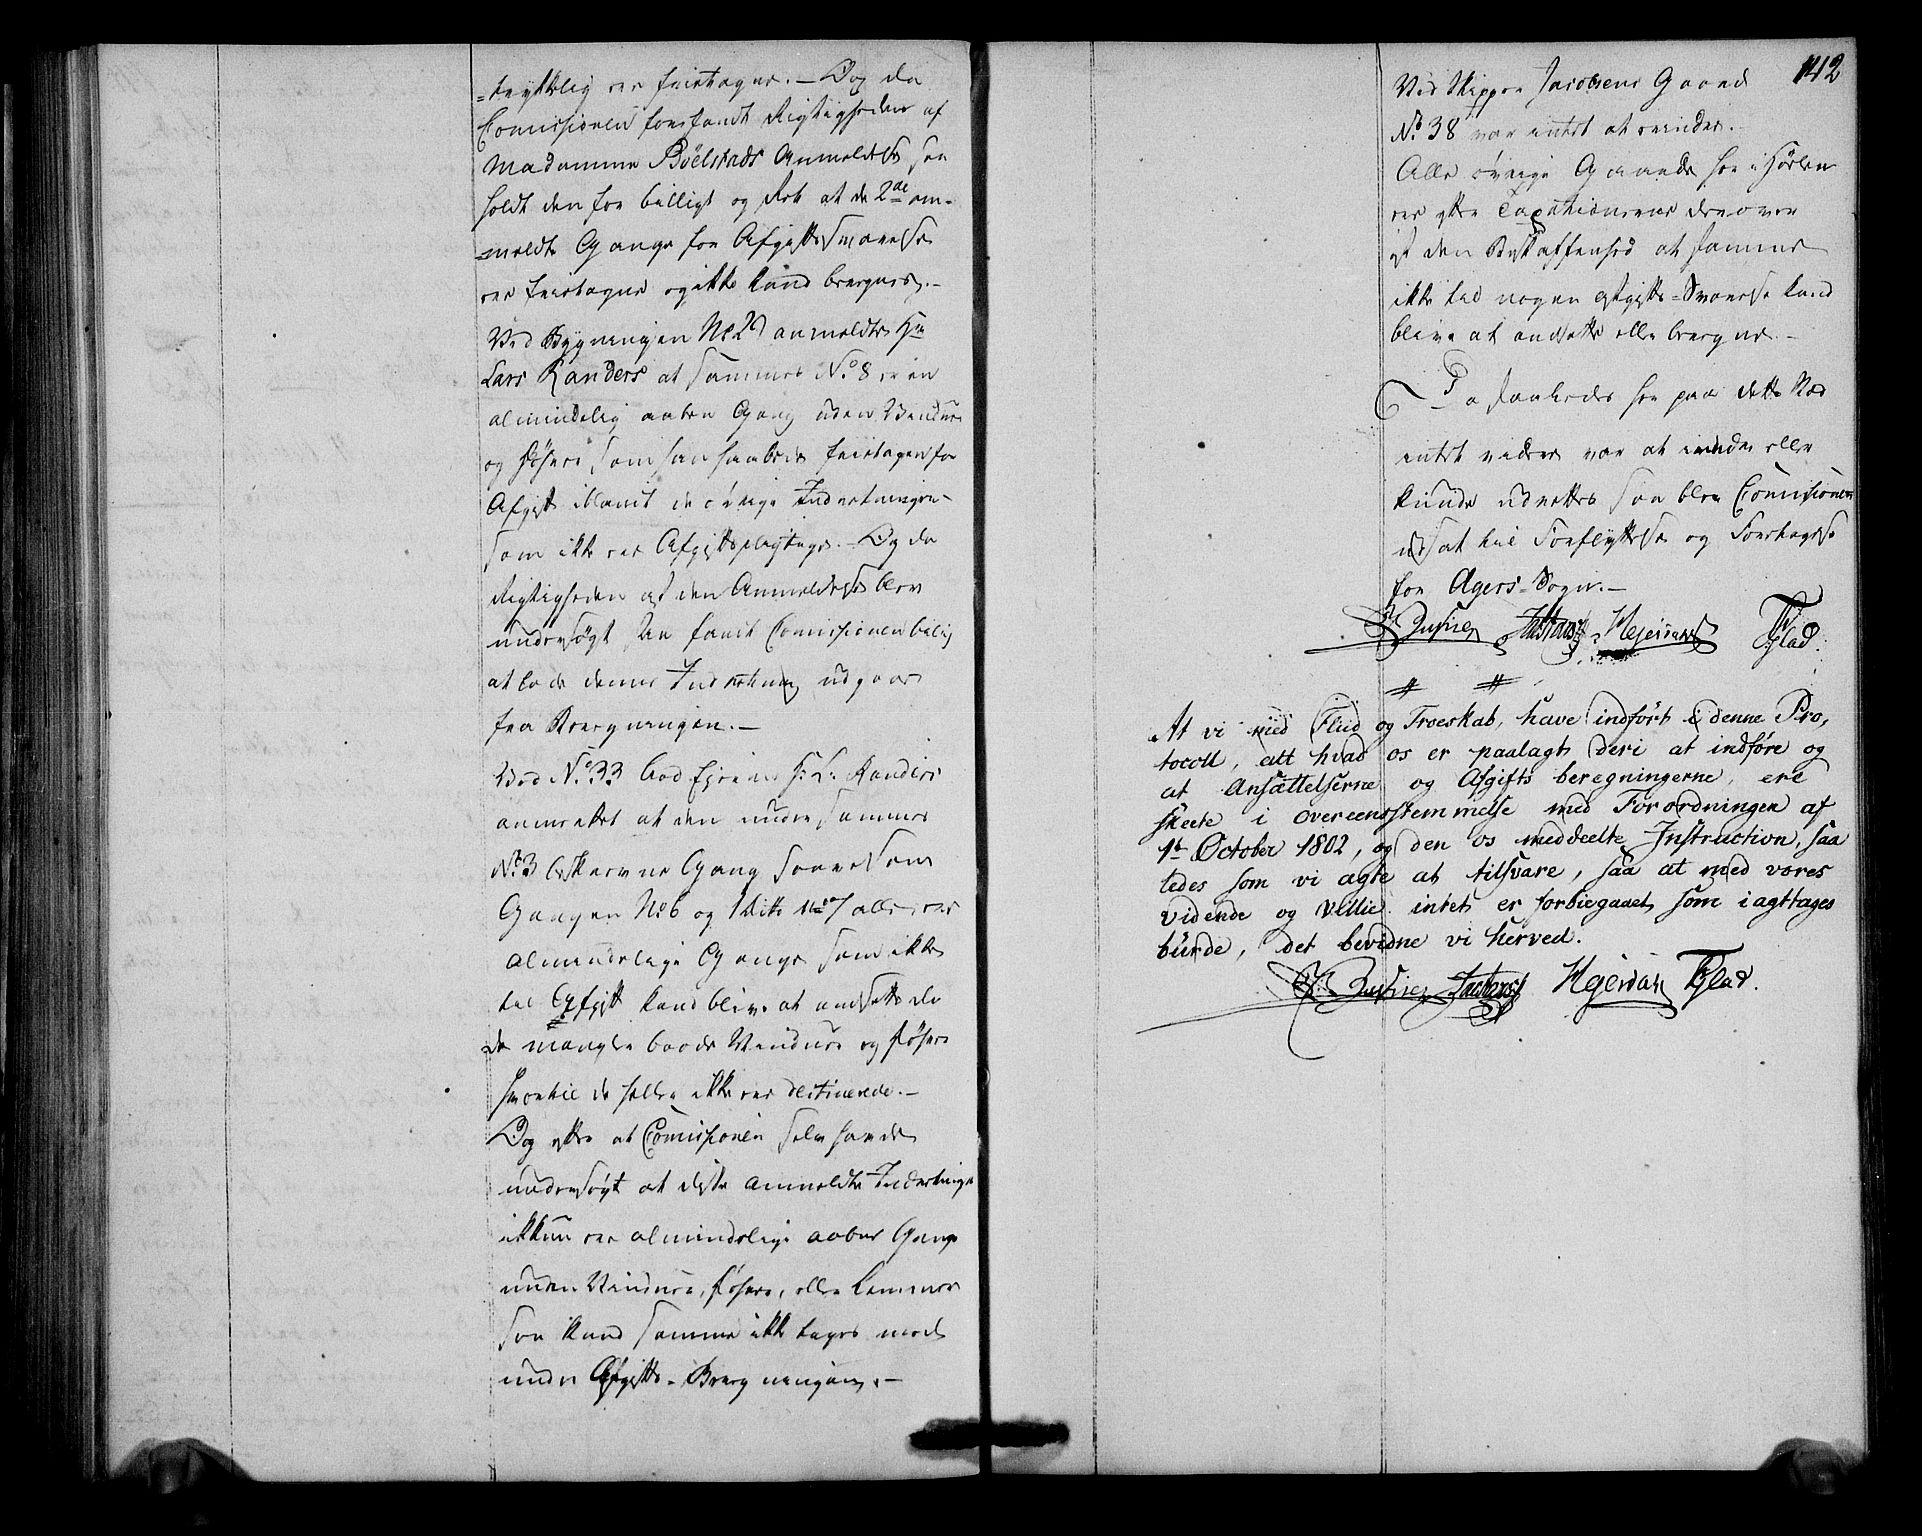 =trykkelig er fritagne. — Og da
Comissionen forefandt Rigtigheden af
Madamme Böelstads Anmeldelse saa
holdt den for billigt og Ret at de 2de an-
=meldte Gange for Afgifts Svarelse
er fritagne og ikke kand beregnes. —
Ved Bygningen No 29 anmeldte Hr
Lars Randers at sammes No 8 er en
almindelig aaben Gang uden Vindue
og som han haabede fritagen for
Afgift iblant de øvrige Indretninger
som ikke er Afgiftspligtige. — Og da
Rigtigheden af den Anmeldelse blev
undersøgt saa fandt Comissionen billig
at lade denne Indretning udgaae
fra Beregningen. —
Ved No 33 lod Eyeren Hr L. Randers
anmerket at den under sammes
No 3 beskrevne Gang saavelsom
Gangen No 6 og 1 Ditto No 7 alle er
almindelige Gange som ikke
til Afgift kand blive at ansette da
de mangler baade Vinduer og
hvortil de heller ikke er destinerede. —
Og efter at Comissionen selv havde
undersøgt at disse anmeldte Indretninger
ikkun er almindelige aabne Gange
uden Vinduer, eller
saa kand samme ikke tages med
under Afgifts-Beregningen. —
142
Ved Skipper Jacobsens Gaard
No 38 var intet at erindre.
Alle øvrige Gaarde her i
er efter Taxationerne derover
af den Beskaffenhed at samme
ikke til nogen Afgifts-Svarelse kand
blive at ansette eller beregne. —
Da saaledes her paa dette Sted
intet videre var at erindre eller
kunde udrettes saa blev Comissionen
udsat til Forflyttelse og Foretagelse
for Agers-Sogn. —
Hejerdahl TGlad.
At vi med Flid og Troeskab, have indført i denne Pro,
tocoll, alt hvad os er paalagt deri at indføre og
at Ansættelserne og Afgifts beregningerne, ere
skeete i overeensstemmelse med Forordningen af
1t October 1802, og den os meddeelte Instruction, saa
ledes som vi agte at tilsvare, saa at med vores
vidende og Villie intet er forbiegaaet, som iagttages
burde, det bevidne vi herved.
Hejerdahl TGlad.